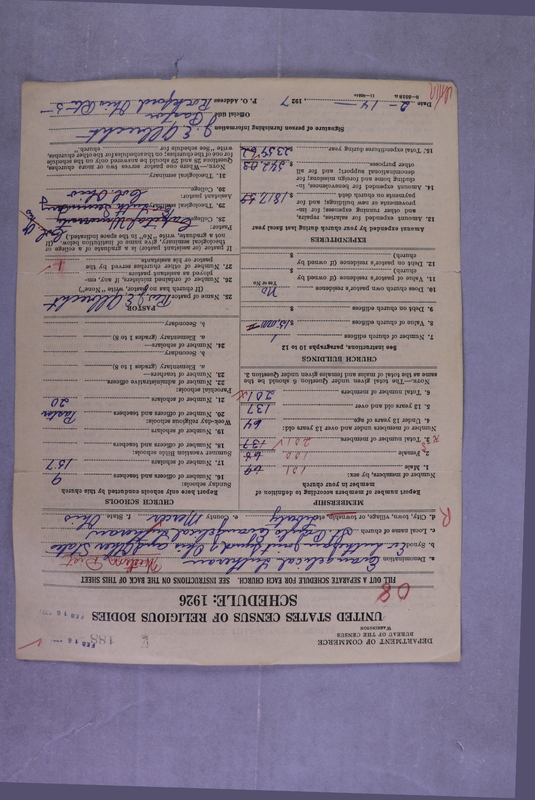 DEPARTMENT OF COMMERCE
BUREAU OF THE CENSUS
WASHINGTON
188
FEB 16
FEB 16
UNITED STATES CENSUS OF RELIGIOUS BODIES
SCHEDULE: 1926
08
FILL OUT A SEPARATE SCHEDULE FOR EACH CHURCH. SEE INSTRUCTIONS ON THE BACK OF THIS SHEET
a. Denomination Evangelical Lutheran Western Dist
b. Synod Ev. Lutheran Joint Synod of Ohio and Other States
c. Local name of church St. Paul's Evangelical Lutheran
d. City, town, village, or township e. County Mercer f. State Ohio
R
MEMBERSHIP
Report number of members according to definition of member in your church
Number of members, by sex:
1. Male 101
2. Female 100
3. Total number of members 201
Number of members under and over 13 years old:
4. Under 13 years of age 64
5. 13 years old and over 137
6. Total number of members 201
NOTE.—The total given under Question 6 should be the same as the total of males and females given under Question 3.
CHURCH BUILDINGS
See instructions, paragraphs 10 to 12
7. Number of church edifices 1
8. Value of church edifices $15,000
9. Debt on church edifices $
10. Does church own pastor's residence no
Yes or No
11. Value of pastor's residence (if owned by church) $
12. Debt on pastor's residence (if owned by church) $
EXPENDITURES
Amount expended by your church during last fiscal year
13. Amount expended for salaries, repairs, and other running expenses; for improvements or new buildings; and for payments on church debt
14. Amount expended for benevolences, including home and foreign missions; for denominational support; and for all other purposes
15. Total expenditures during year
CHURCH SCHOOLS
Report here only schools conducted by this church
Sunday schools:
16. Number of officers and teachers 9
17. Number of scholars 157
Summer vacation Bible schools:
18. Number of officers and teachers
19. Number of scholars
Week-day religious schools:
20. Number of officers and teachers Pastor
21. Number of scholars 20
Parochial schools:
22. Number of administrative officers
23. Number of teachers—
a. Elementary (grades 1 to 8)
b. Secondary
24. Number of scholars—
a. Elementary (grades 1 to 8)
b. Secondary
PASTOR
25. Name of pastor Rev. J. E. Albrecht
(If church has no pastor, write "None")
26. Number of ordained ministers, if any, employed as assistant pastors
27. Number of other churches served by the pastor or his assistants 1
If pastor or assistant pastor is a graduate of a college or theological seminary, give name of institution below. (If not a graduate, write "No" in the space indicated.)
Pastor:
28. College Capital University
29. Theological seminary
Assistant pastor:
30. College
31. Theological seminary
NOTE.—Where one pastor serves two or more churches, Questions 28 and 29 should be answered only on the schedule for one of the churches; on schedules for the other churches, write "See schedule for church."
Signature of person furnishing information J. E. Albrecht
Official title Pastor
P. O. Address Rockford Ohio
Date 2-14, 1927